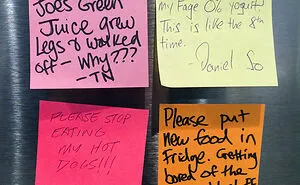 Joes Green
Juice grew
Legs & walked
off – Why???
– TN
my Fage 0% yogurt
This is like the 8th
time.
– Daniel So
PLEASE STOP
EATING
MY HOT
DOGS!!!
Please put
New food in
Fridge. Getting
bored of the